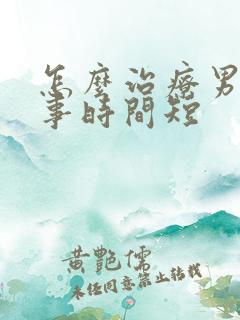 怎麼治療男
事時間短
黃艷儒
未經同意禁止轉載